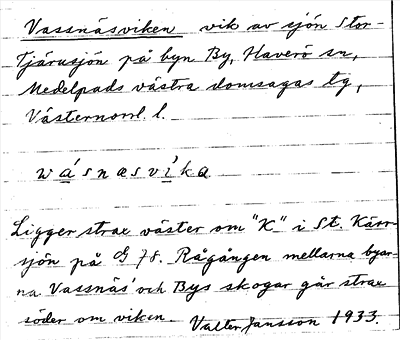 Vassnäsviken vik av sjön Stor-
Tjärnsjön på byn By, Haverö sn,
Medelpads västra domsagas tg,
Västernorrl. l.
wásnæsvìka
Ligger strax väster om "K" i St. Kärr-
sjön på G 78. Rågången mellarna byar-
na Vassnäs' och Bys skogar går strax
söder om viken. Valter Jansson 1933.